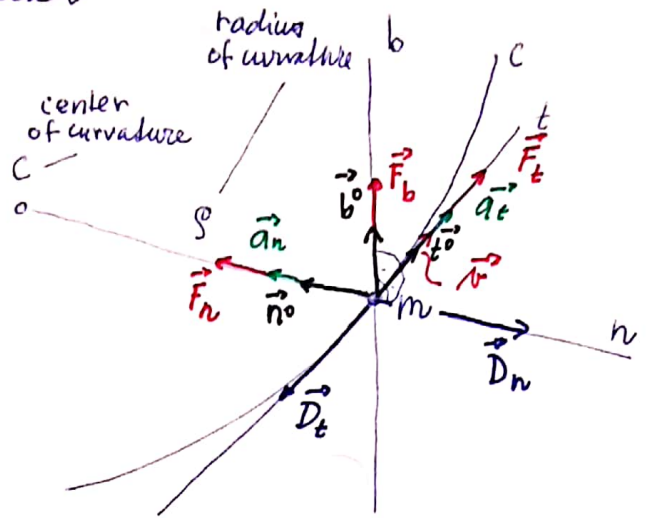 radius
of curvature
b
c
center
of curvature
t
C
F⃗t
F⃗b
b⃗°
a⃗t
ρ
a⃗n
t⃗°
v⃗
F⃗n
n⃗°
m
n
D⃗n
D⃗t